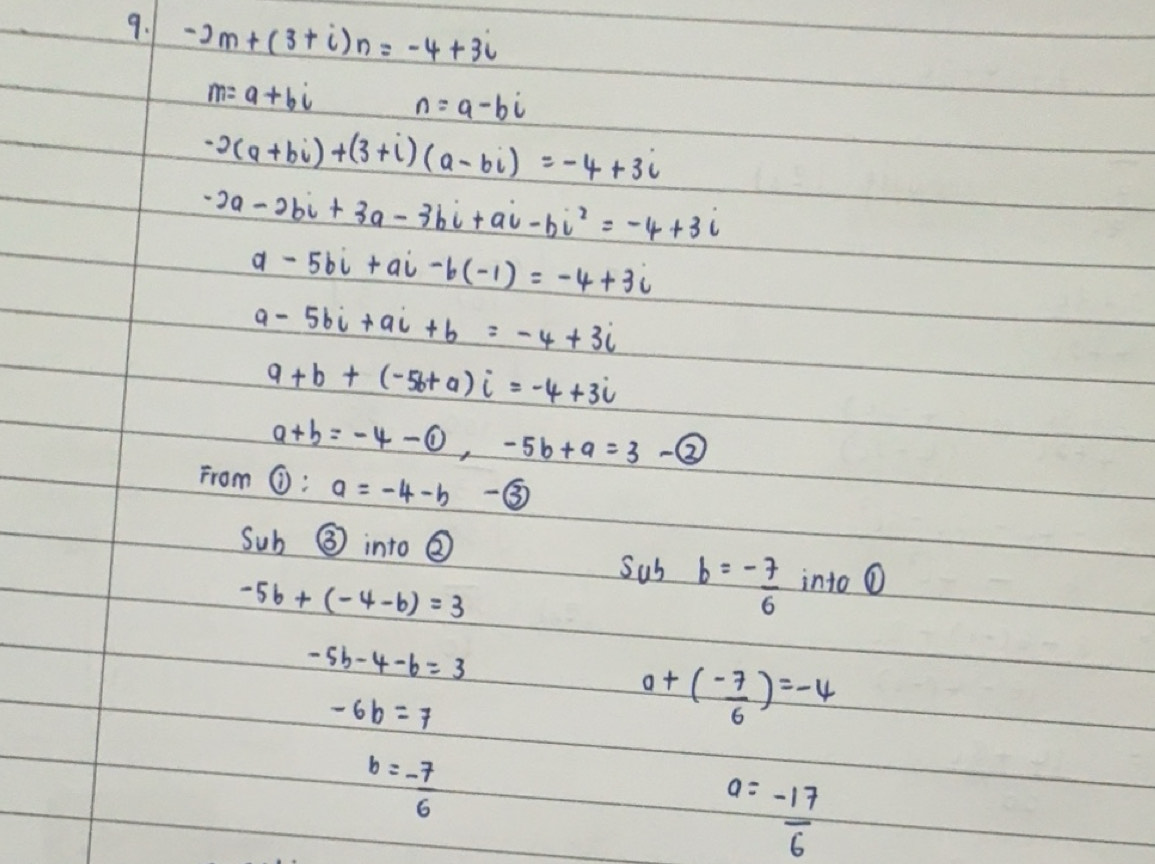 9. -2m + (3 + i)n = -4 + 3i
m = a + bi n = a - bi
-2(a + bi) + (3 + i)(a - bi) = -4 + 3i
-2a - 2bi + 3a - 3bi + ai - bi² = -4 + 3i
a - 5bi + ai - b(-1) = -4 + 3i
a - 5bi + ai + b = -4 + 3i
a + b + (-5b + a)i = -4 + 3i
a + b = -4 - ①, -5b + a = 3 - ②
From ①: a = -4 - b - ③
Sub ③ into ②
-5b + (-4 - b) = 3
-5b - 4 - b = 3
-6b = 7
b = -7/6
Sub b = -7/6 into ①
a + (-7/6) = -4
a = -17/6